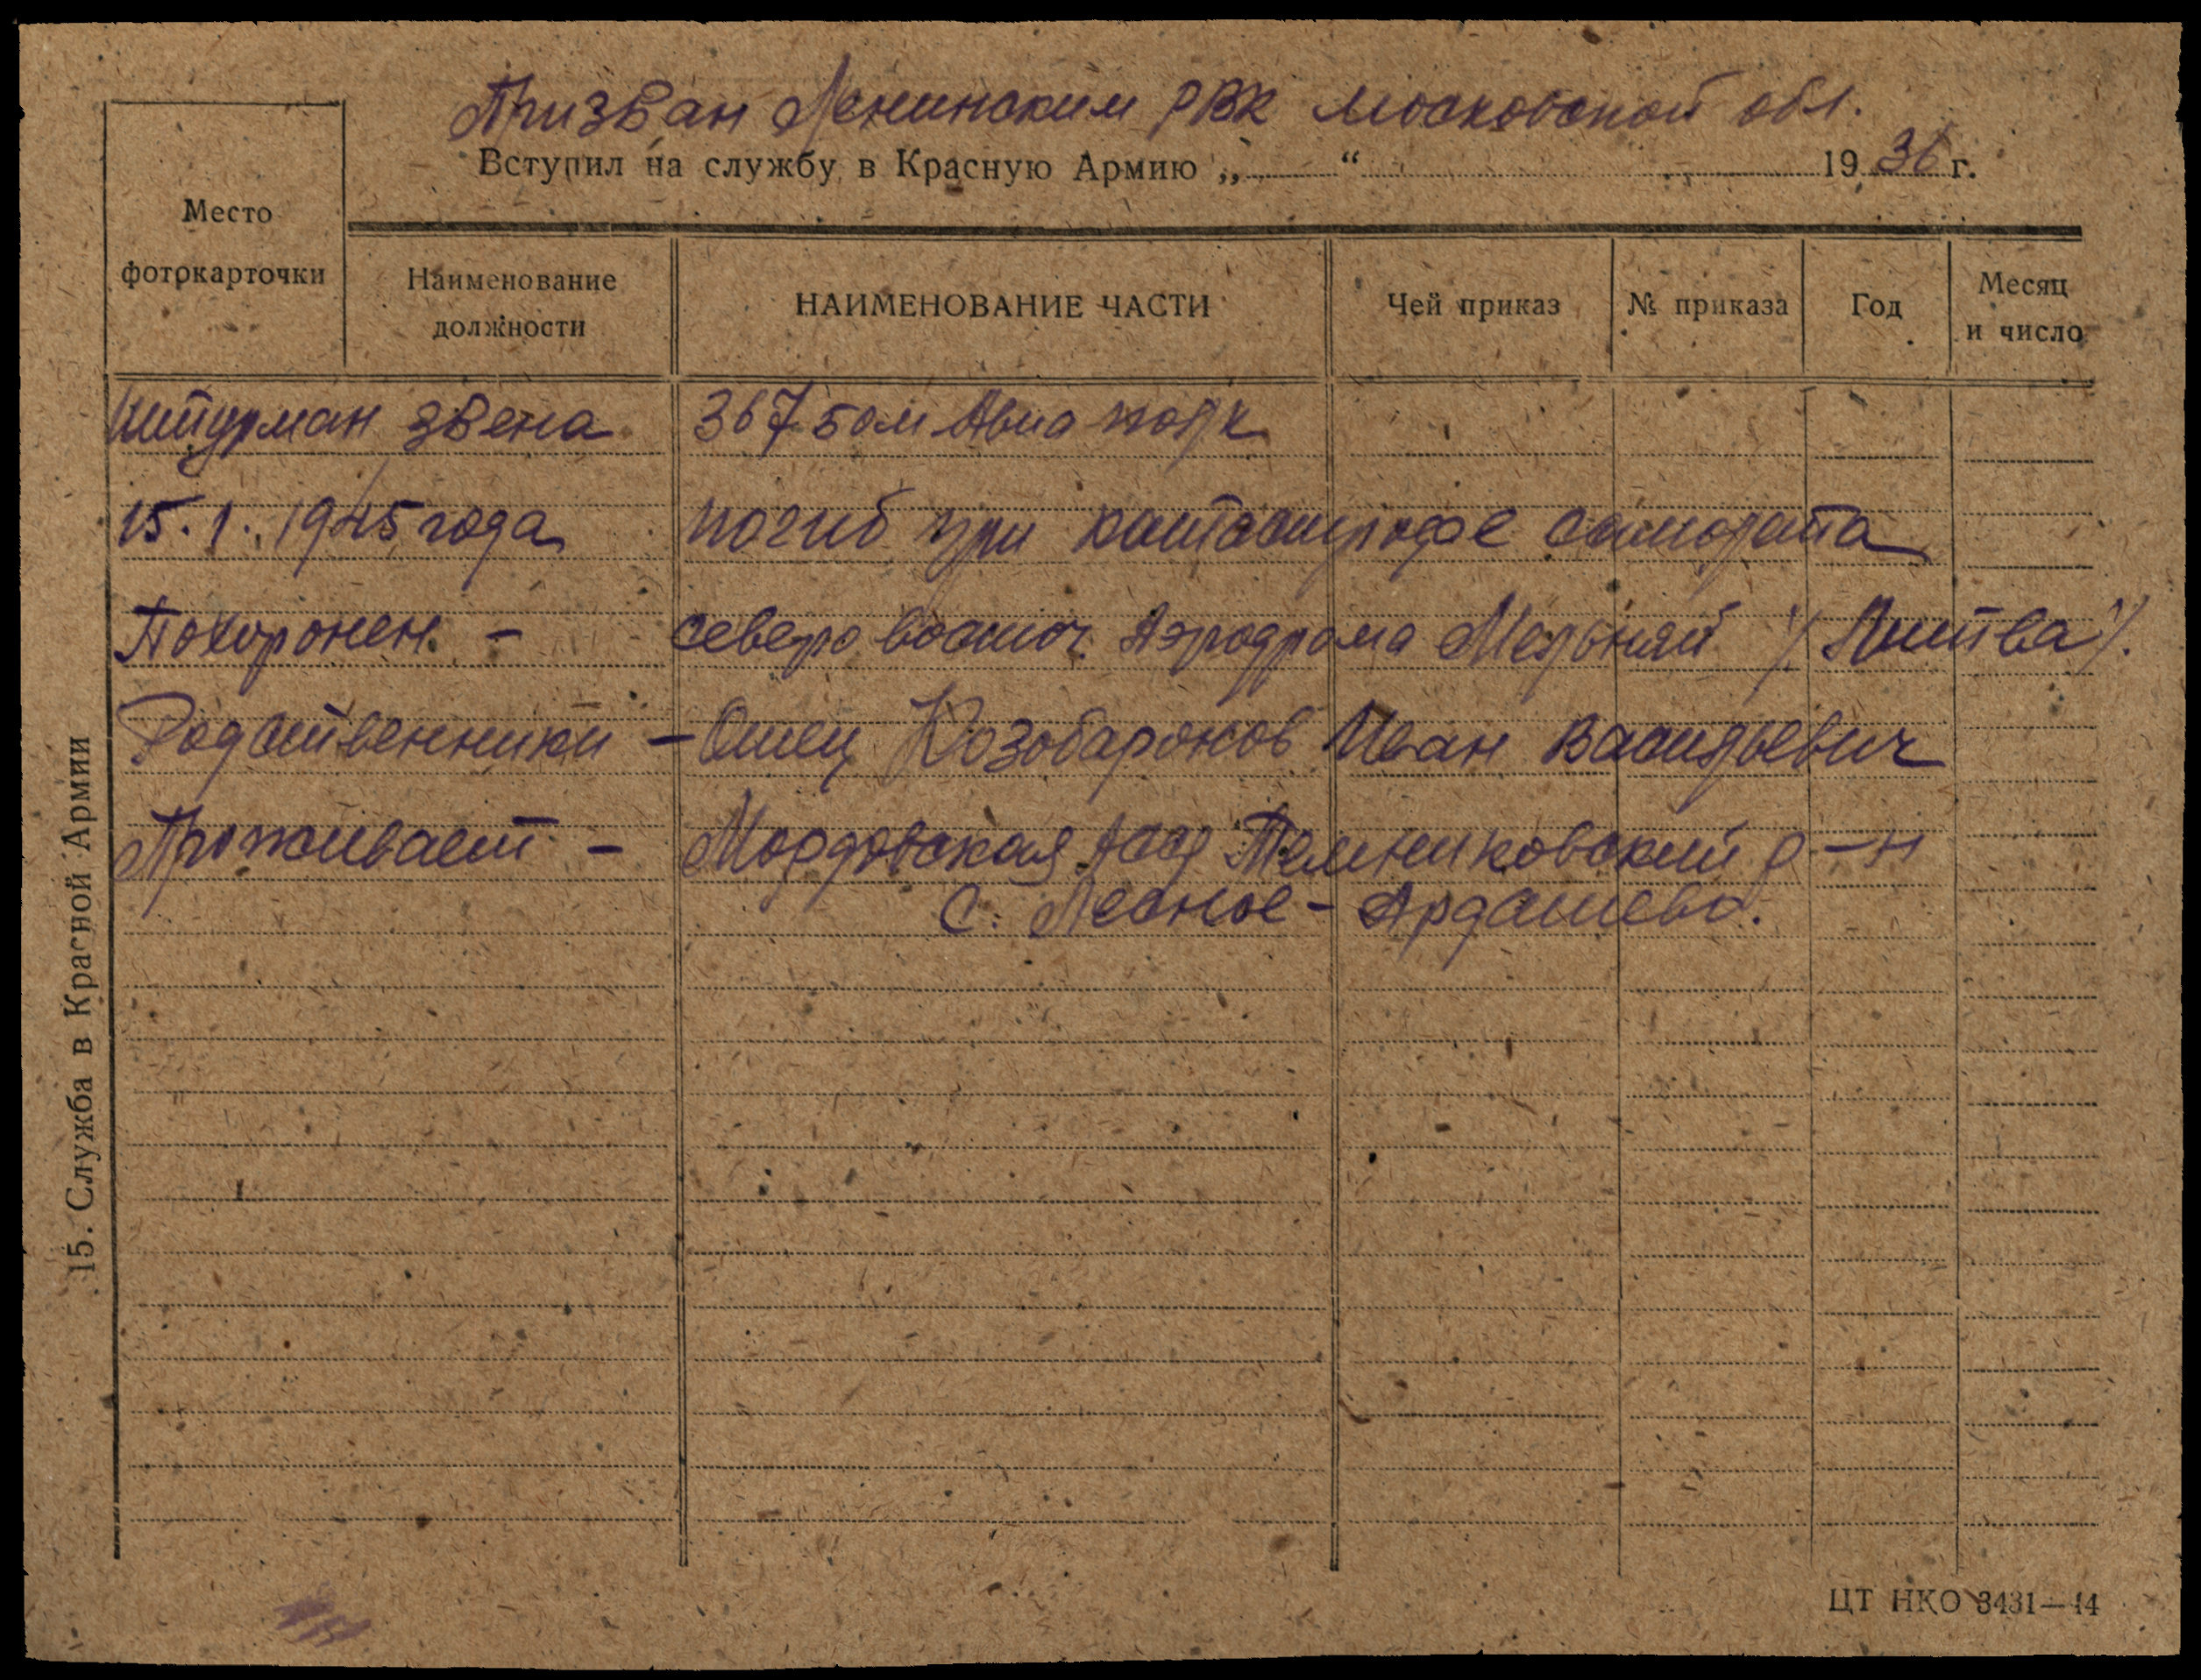 Призван Ленинским РВК Московской обл.
Вступил на службу в Красную Армию „ “ 1936 г.
Место
фотокарточки
Наименование
должности
НАИМЕНОВАНИЕ ЧАСТИ
Чей приказ
№ приказа
Год
Месяц
и число
Штурман звена 367 бом Авиа полк
15.1.1945 года погиб при катастрофе самолета
Похоронен - северо восточ. Аэродрома Мельняй /Литва/.
Родственники - Отец Козобаронов Иван Васильевич
Проживает - Мордовская АССР Темниковский р-н
с. Лесное-Ардашево.
15. Служба в Красной Армии
ЦТ НКО 3431—44